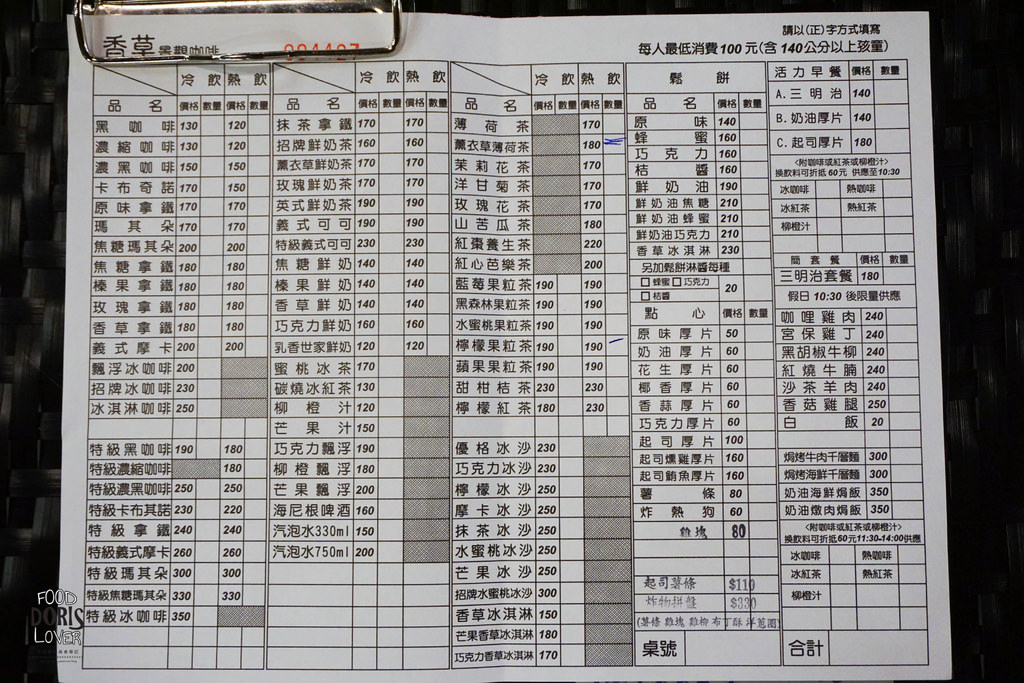 香草景觀咖啡
請以(正)字方式填寫
每人最低消費100元(含140公分以上孩童)
冷飲 熱飲
品名 價格 數量 價格 數量
黑咖啡 130 120
濃縮咖啡 130 120
濃黑咖啡 150 150
卡布奇諾 170 150
原味拿鐵 170 170
瑪其朵 170 170
焦糖瑪其朵 200 200
焦糖拿鐵 180 180
榛果拿鐵 180 180
玫瑰拿鐵 180 180
香草拿鐵 180 180
義式摩卡 200 200
飄浮冰咖啡 200
招牌冰咖啡 230
冰淇淋咖啡 250
特級黑咖啡 190 180
特級濃縮咖啡 180
特級濃黑咖啡 250 250
特級卡布其諾 230 220
特級拿鐵 240 240
特級義式摩卡 260 260
特級瑪其朵 300 300
特級焦糖瑪其朵 330 330
特級冰咖啡 350
冷飲 熱飲
品名 價格 數量 價格 數量
抹茶拿鐵 170 170
招牌鮮奶茶 160 160
薰衣草鮮奶茶 170 170
玫瑰鮮奶茶 170 170
英式鮮奶茶 190 190
義式可可 190 190
特級義式可可 230 230
焦糖鮮奶 140 140
榛果鮮奶 140 140
香草鮮奶 140 140
巧克力鮮奶 160 160
乳香世家鮮奶 120 120
蜜桃冰茶 170
碳燒冰紅茶 130
柳橙汁 120
芒果汁 150
巧克力飄浮 190
柳橙飄浮 180
芒果飄浮 200
海尼根啤酒 160
汽泡水330ml 150
汽泡水750ml 200
冷飲 熱飲
品名 價格 數量 價格 數量
薄荷茶 170
薰衣草薄荷茶 180
茉莉花茶 170
洋甘菊茶 170
玫瑰花茶 170
山苦瓜茶 180
紅棗養生茶 220
紅心芭樂茶 200
藍莓果粒茶 190 190
黑森林果粒茶 190 190
水蜜桃果粒茶 190 190
檸檬果粒茶 190 190
蘋果果粒茶 190 190
甜柑桔茶 230 230
檸檬紅茶 180 230
優格冰沙 230
巧克力冰沙 230
檸檬冰沙 250
摩卡冰沙 250
抹茶冰沙 250
水蜜桃冰沙 250
芒果冰沙 250
招牌水蜜桃冰沙 300
香草冰淇淋 150
芒果香草冰淇淋 180
巧克力香草冰淇淋 170
鬆餅
品名 價格 數量
原味 140
蜂蜜 160
巧克力 160
桔醬 160
鮮奶油 190
鮮奶油焦糖 210
鮮奶油蜂蜜 210
鮮奶油巧克力 210
香草冰淇淋 230
另加鬆餅淋醬每種
□蜂蜜□巧克力
□桔醬 20
點心 價格 數量
原味厚片 50
奶油厚片 60
花生厚片 60
椰香厚片 60
香蒜厚片 60
巧克力厚片 60
起司厚片 100
起司燻雞厚片 160
起司鮪魚厚片 160
薯條 80
炸熱狗 60
雞塊 80
起司薯條 $110
炸物拼盤 $330
(薯條 雞塊 雞柳 布丁酥 洋蔥圈)
桌號
活力早餐 價格 數量
A.三明治 140
B.奶油厚片 140
C.起司厚片 180
<附咖啡或紅茶或柳橙汁>
換飲料可折抵60元 供應至10:30
冰咖啡 熱咖啡
冰紅茶 熱紅茶
柳橙汁
簡套餐 價格 數量
三明治套餐 180
假日10:30後限量供應
咖哩雞肉 240
宮保雞丁 240
黑胡椒牛柳 240
紅燒牛腩 240
沙茶羊肉 240
香菇雞腿 250
白飯 20
焗烤牛肉千層麵 300
焗烤海鮮千層麵 300
奶油海鮮焗飯 350
奶油燉肉焗飯 350
<附咖啡或紅茶或柳橙汁>
換飲料可折抵60元11:30-14:00供應
冰咖啡 熱咖啡
冰紅茶 熱紅茶
柳橙汁
合計
FOOD
DORIS
LOVER